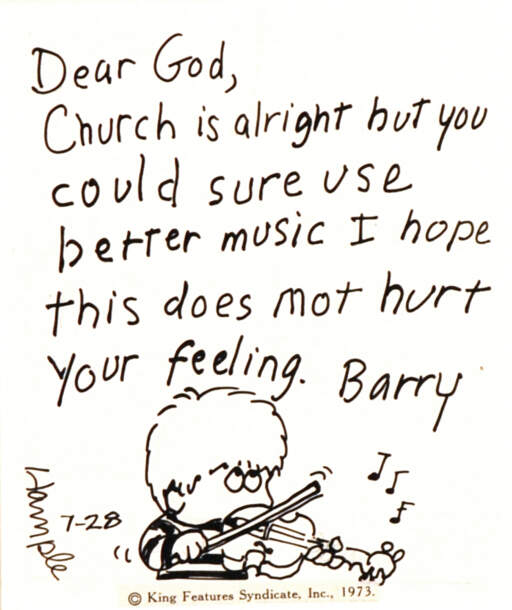 Dear God,
Church is alright but you
could sure use
better music I hope
this does not hurt
your feeling. Barry
Hample
7-28
© King Features Syndicate, Inc., 1973.